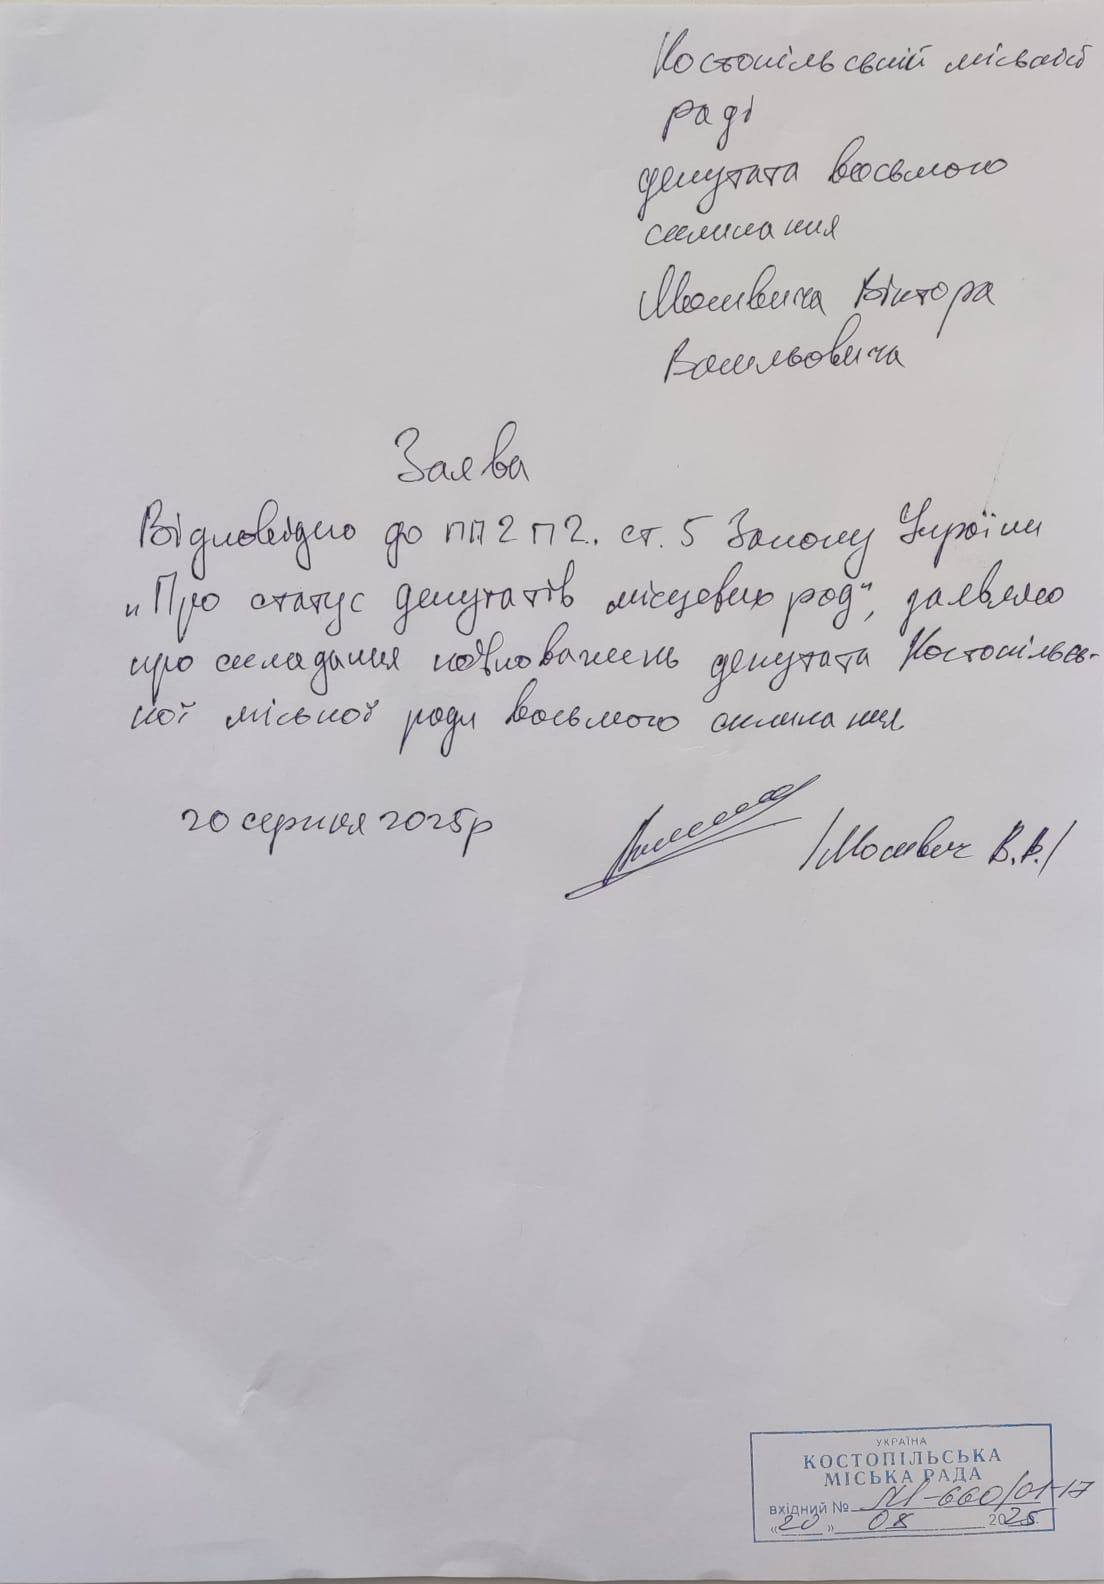 Костопільській міській
раді
депутата восьмого
скликання
Мосійвича Віктора
Васильовича
Заява
Відповідно до пп2 п2. ст. 5 Закону України
"Про статус депутатів місцевих рад", заявляю
про складання повноважень депутата Костопільсь-
кої міської ради восьмого скликання
20 серпня 2025р
В.В./
УКРАЇНА
КОСТОПІЛЬСЬКА
МІСЬКА РАДА
вхідний № М-660/01-17
«20» 08 2025